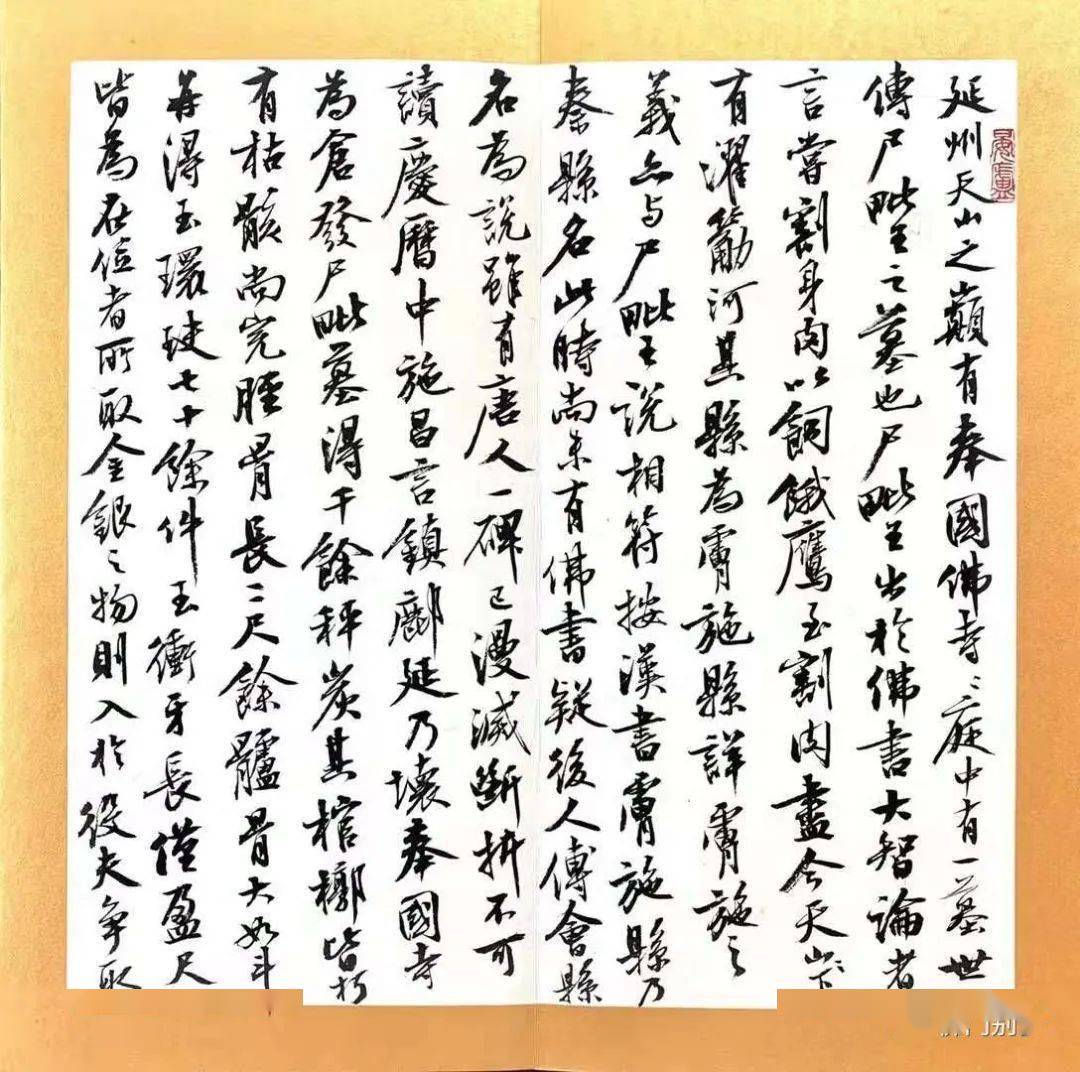 延州天山之巔有奉國佛寺〻庭中有一墓世
傳尸毗王之墓也尸毗王出於佛書大智論者
言嘗割身肉以飼餓鷹至割肉盡今天山之下
有濯筋河其縣為膚施縣詳膚施之
義亦与尸毗王説相符按漢書膚施縣乃
秦縣名此時尚未有佛書疑後人傅會縣
名為説雖有唐人一碑已漫滅斷折不可
讀慶曆中施昌言鎮鄜延乃壞奉國寺
為倉發尸毗墓得千餘秤炭其棺槨皆朽
有枯骸尚完脛骨長二尺餘髗骨大如斗
并得玉環玦七十餘件玉衝牙長僅盈尺
皆為在位者所取金銀之物則入於役夫爭取